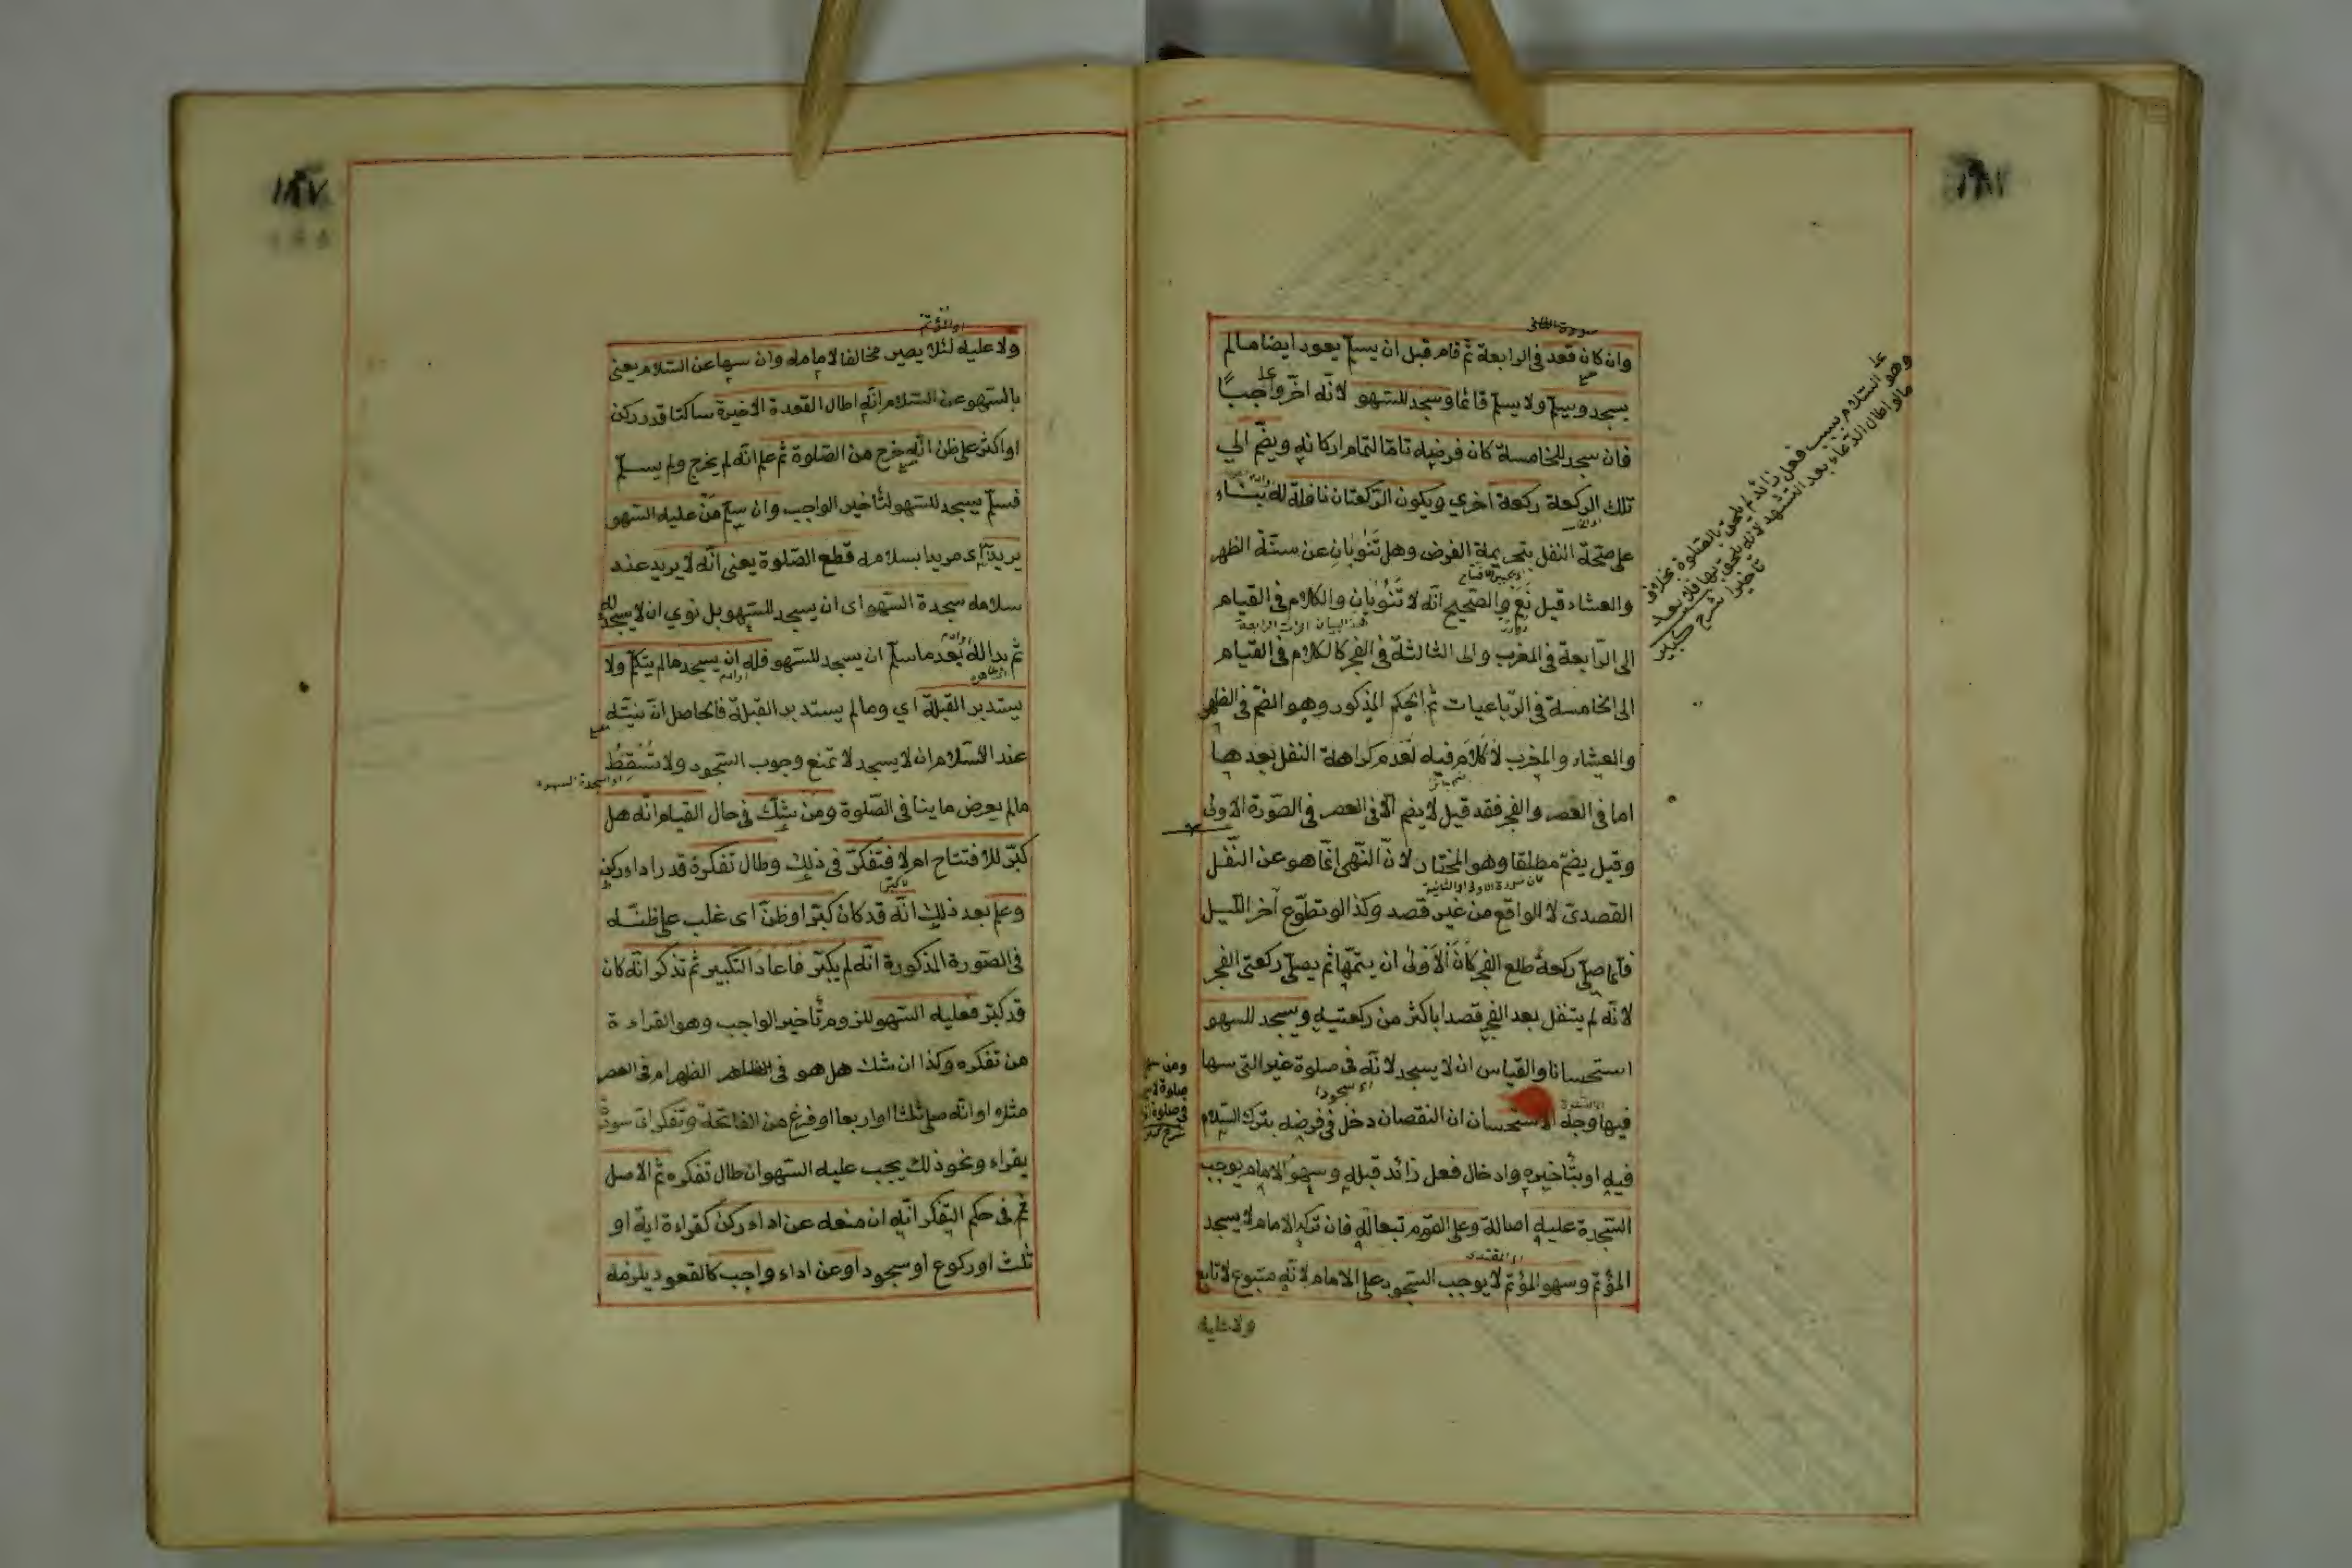 صورة الثانى
وان كان قعد فى الرابعة ثم قام قبل ان يسلم يعود ايضا مالم
يسجد ويسلم ولا يسلم قائما وسجد للسهو لانّه اخّر واجبًا
فان سجد للخامسة كان فرضه تامّا لتمام اركانه ويضمّ الي
تلك الركعة ركعة اخري ويكون الرّكعتان نافلة له بناء
على صحّة النفل بتحريمة الفرض وهل تَنُوبَانِ عن سنّة الظهر
والعشاء قيل نَعَم والصّحيح انّه لا تَنُوبَانِ والكلام فى القيام
الى الرّابعة فى المغرب والى الثالثة فى الفجر كالكلام فى القيام
الى الخامسة فى الرّباعيات ثم الحكم المذكور وهو الضمّ فى الظهر
والعشاء والمغرب لا كَلَامَ فيه لعَدم كراهة النفل بعدها
اما فى العصر والفجر فقد قيل لا يضم الا فى العصر فى الصّورة الاولى
وقيل يضمّ مطلقا وهو المختار لانّ النّهى انّما هو عن النّفل
القصدىّ لا الواقع من غير قصد وكذا لو تطوّع آخر اللّيل
فلمّا صلّى ركعةً طلع الفجر كَانَ الْاَوْلى ان يتمّها ثم يصلّى ركعتى الفجر
لانّه لم يتنفل بعد الفجر قصدا باكثر من ركعتيه ويسجد للسهو
استحسانا والقياس ان لا يسجد لانّه فى صلوة غير التى سها
فيها وجه الاستحسان ان النقصان دخل فى فرضه بترك السّلام
فيه او بتأخيره وادخال فعل زائد قبله وسهو الامام يوجب
السّجدة عليه اصالة وعلى القوم تبعا له فان تركه الامام لا يسجد
المؤتمّ وسهو المؤتمّ لا يوجب السّجود على الامام لانّه متبوع لا تابع
ولا عليه
وهو السّلام بسبب فعل زائد لم يلحق بالصّلوة بخلاف
مالو اطال الدّعاء بعد التشهد لانّه يلحق بها فلا يعد
تأخيرا شرح كبير
او المؤتمّ
ولا عليه لئلا يصير مخالفا لامامه وان سها عن السّلام يعنى
بالسّهو عن السّلام انّه اطال القعدة الاخيرة ساكتا قدر ركن
او اكثر على ظن انّه خرج من الصّلوة ثم علم انّه لم يخرج ولم يسلّم
فسلّم يسجد للسّهو لتأخير الواجب وان سلم مَن عليه السّهو
يريد اى مريدا بسلامه قطع الصّلوة يعنى انّه لا يريد عند
سلامه سجدة السّهو اى ان يسجد للسّهو بل نوي ان لا يسجد له
ثم بدا له بَعد ما سلّم ان يسجد للسّهو فله ان يسجد مالم يتكلم ولا
يستدبر القبلة اي وما لم يستدبر القبلة فالحاصل انّ نيّته
عند السّلام ان لا يسجد لا تمنع وجوب السّجود ولا تُسْقِطُ
مالم يعرض ما ينا فى الصّلوة ومَن شكّ فى حال القيام انّه هل
كبّر للافتتاح ام لا فتفكّر فى ذلك وطال تفكره قدر اداء ركن
وعلم بعد ذلك انّه قد كان كبّر او ظنّ اى غلب على ظنّه
فى الصّورة المذكورة انّه لم يكبّر فاعاد التكبير ثم تذكر انّه كان
قد كبّر فعليه السّهو للزوم تأخير الواجب وهو القراءة
من تفكره وكذا ان شك هل هو فى الظهر ام فى العصر
مثلا او انّه صلّى ثلثا او اربعا او فرغ من الفاتحة وتفكر اىّ سورة
يقراء ونحو ذلك يجب عليه السّهو ان طال تفكره ثم الاصل
ثم فى حكم التّفكر انّه ان منعه عن اداء ركن كقراءة اية او
ثلث او ركوع او سجود او عن اداء واجب كالقعود يلزمه